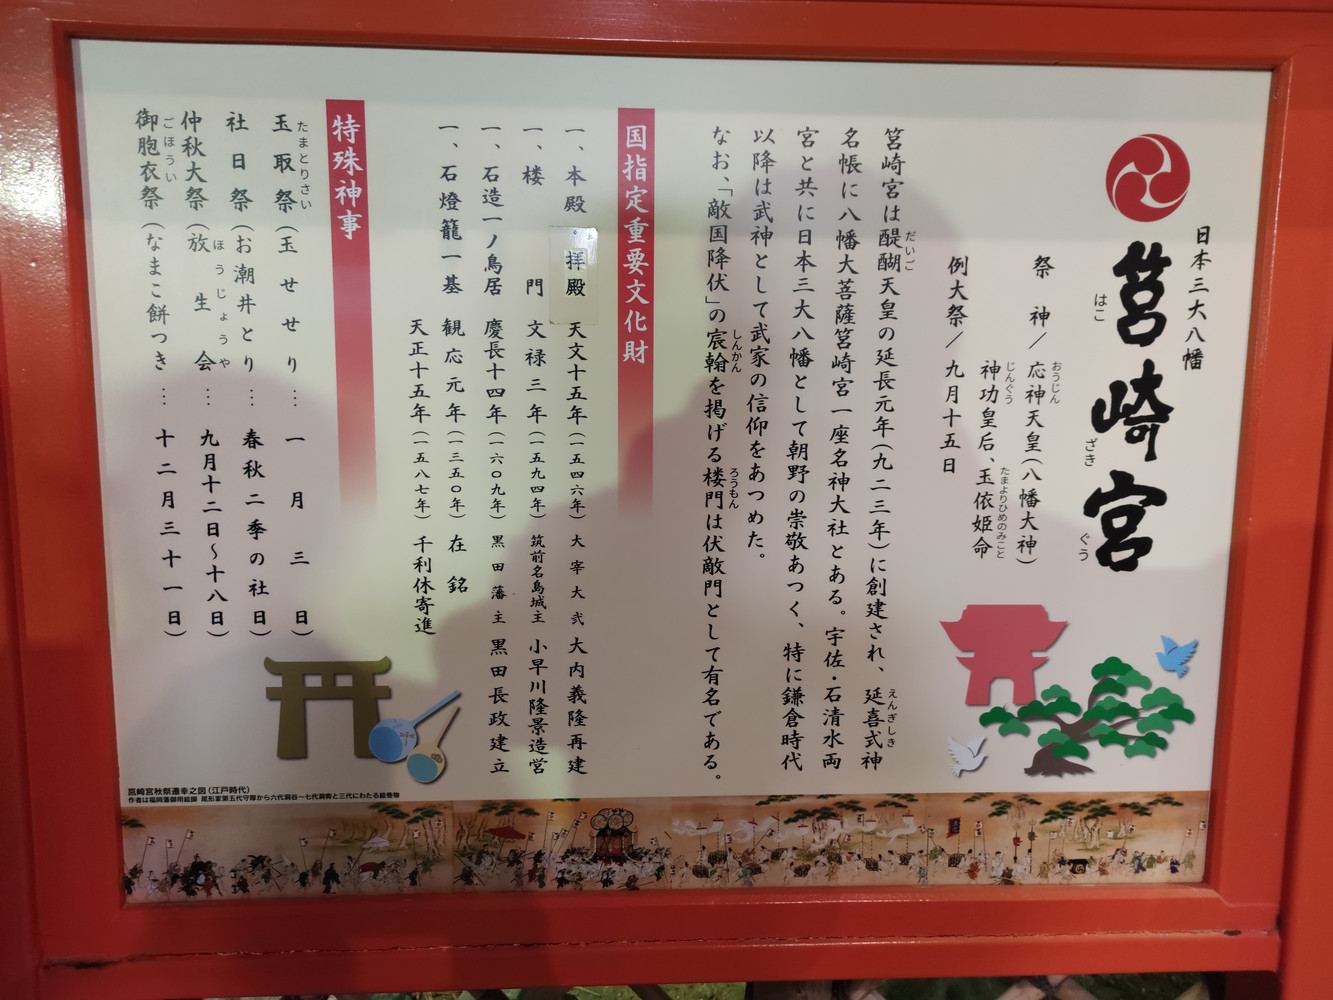 日本三大八幡
筥崎宮
はこざきぐう
祭神／応神天皇(八幡大神)
おうじん
神功皇后、玉依姫命
じんぐう たまよりひめのみこと
例大祭／九月十五日
筥崎宮は醍醐天皇の延長元年(九二三年)に創建され、延喜式神
だいご えんぎしき
名帳に八幡大菩薩筥崎宮一座名神大社とある。宇佐・石清水両
宮と共に日本三大八幡として朝野の崇敬あつく、特に鎌倉時代
以降は武神として武家の信仰をあつめた。
なお、「敵国降伏」の宸翰を掲げる楼門は伏敵門として有名である。
しんかん ろうもん
国指定重要文化財
一、本殿 拝殿 天文十五年(一五四六年) 大宰大弐 大内義隆再建
一、楼門 文禄三年(一五九四年) 筑前名島城主 小早川隆景造営
一、石造一ノ鳥居 慶長十四年(一六〇九年) 黒田藩主 黒田長政建立
一、石燈籠一基 観応元年(一三五〇年) 在銘
天正十五年(一五八七年) 千利休寄進
特殊神事
玉取祭(玉せせり… 一月三日)
たまとりさい
社日祭(お潮井とり… 春秋二季の社日)
仲秋大祭(放生会… 九月十二日～十八日)
ほうじょうや
御胞衣祭(なまこ餅つき… 十二月三十一日)
ごほうい
筥崎宮秋祭遷幸之図(江戸時代)
作者は福岡藩御用絵師 尾形家第五代守厚から六代洞谷～七代洞霄と三代にわたる絵巻物